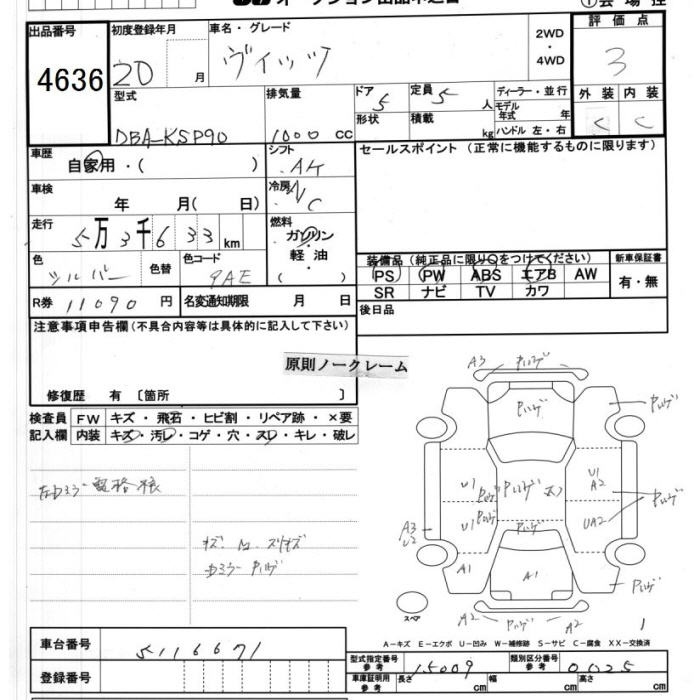 出品番号
4636
初度登録年月
20 月
車名・グレード
ヴィッツ
2WD
・
4WD
評価点
3
外装 内装
C C
型式
DBA-KSP90
排気量
1000 cc
ドア
5
形状
定員
5 人
積載
kg
ディーラー・並行
モデル
年式 年
ハンドル 左・右
車歴
自家用・( )
シフト
AT
セールスポイント (正常に機能するものに限ります)
車検
年 月( 日)
冷房
AC
走行
5万3千633km
燃料
ガソリン
・
軽油
( )
色
シルバー
色替
色コード
装備品 (純正品に限り○をつけてください)
PS PW ABS エアB AW
SR ナビ TV カワ
新車保証書
有・無
R券 11090 円
名変通知期限 月 日
後日品
注意事項申告欄(不具合内容等は具体的に記入して下さい)
原則ノークレーム
修復歴 有 〔箇所 〕
検査員
記入欄
FW キズ・飛石・ヒビ割・リペア跡・×要
内装 キズ・汚レ・コゲ・穴・スレ・キレ・破レ
A3
U1
U1
A2
U1
UA2
A3
U2
A1
A1
スペア
A2
A2
1
A－キズ E－エクボ U－凹み W－補修跡 S－サビ C－腐食 XX－交換済
車台番号
5116671
登録番号
型式指定番号
参考
15009
類別区分番号
参考
0125
車庫証明用
参考
長さ cm
幅 cm
高さ cm